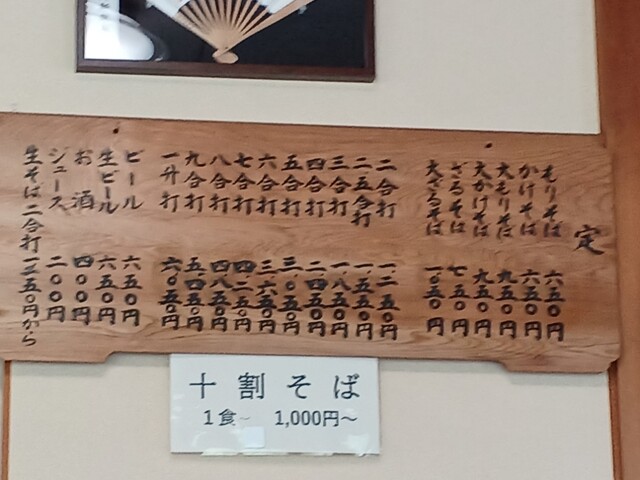 定
もりそば 六五〇円
かけそば 六五〇円
大もりそば 九五〇円
大かけそば 九五〇円
ざるそば 七五〇円
大ざるそば 一、〇五〇円
二合打 一、二五〇円
二五合打 一、五五〇円
三合打 一、八五〇円
四合打 二、四五〇円
五合打 三、〇五〇円
六合打 三、六五〇円
七合打 四、二五〇円
八合打 四、八五〇円
九合打 五、四五〇円
一升打 六、〇五〇円
ビール 六五〇円
生ビール 六五〇円
お酒 四〇〇円
ジュース 二〇〇円
生そば二合打 一二五〇円から
十割そば
1食~ 1,000円~